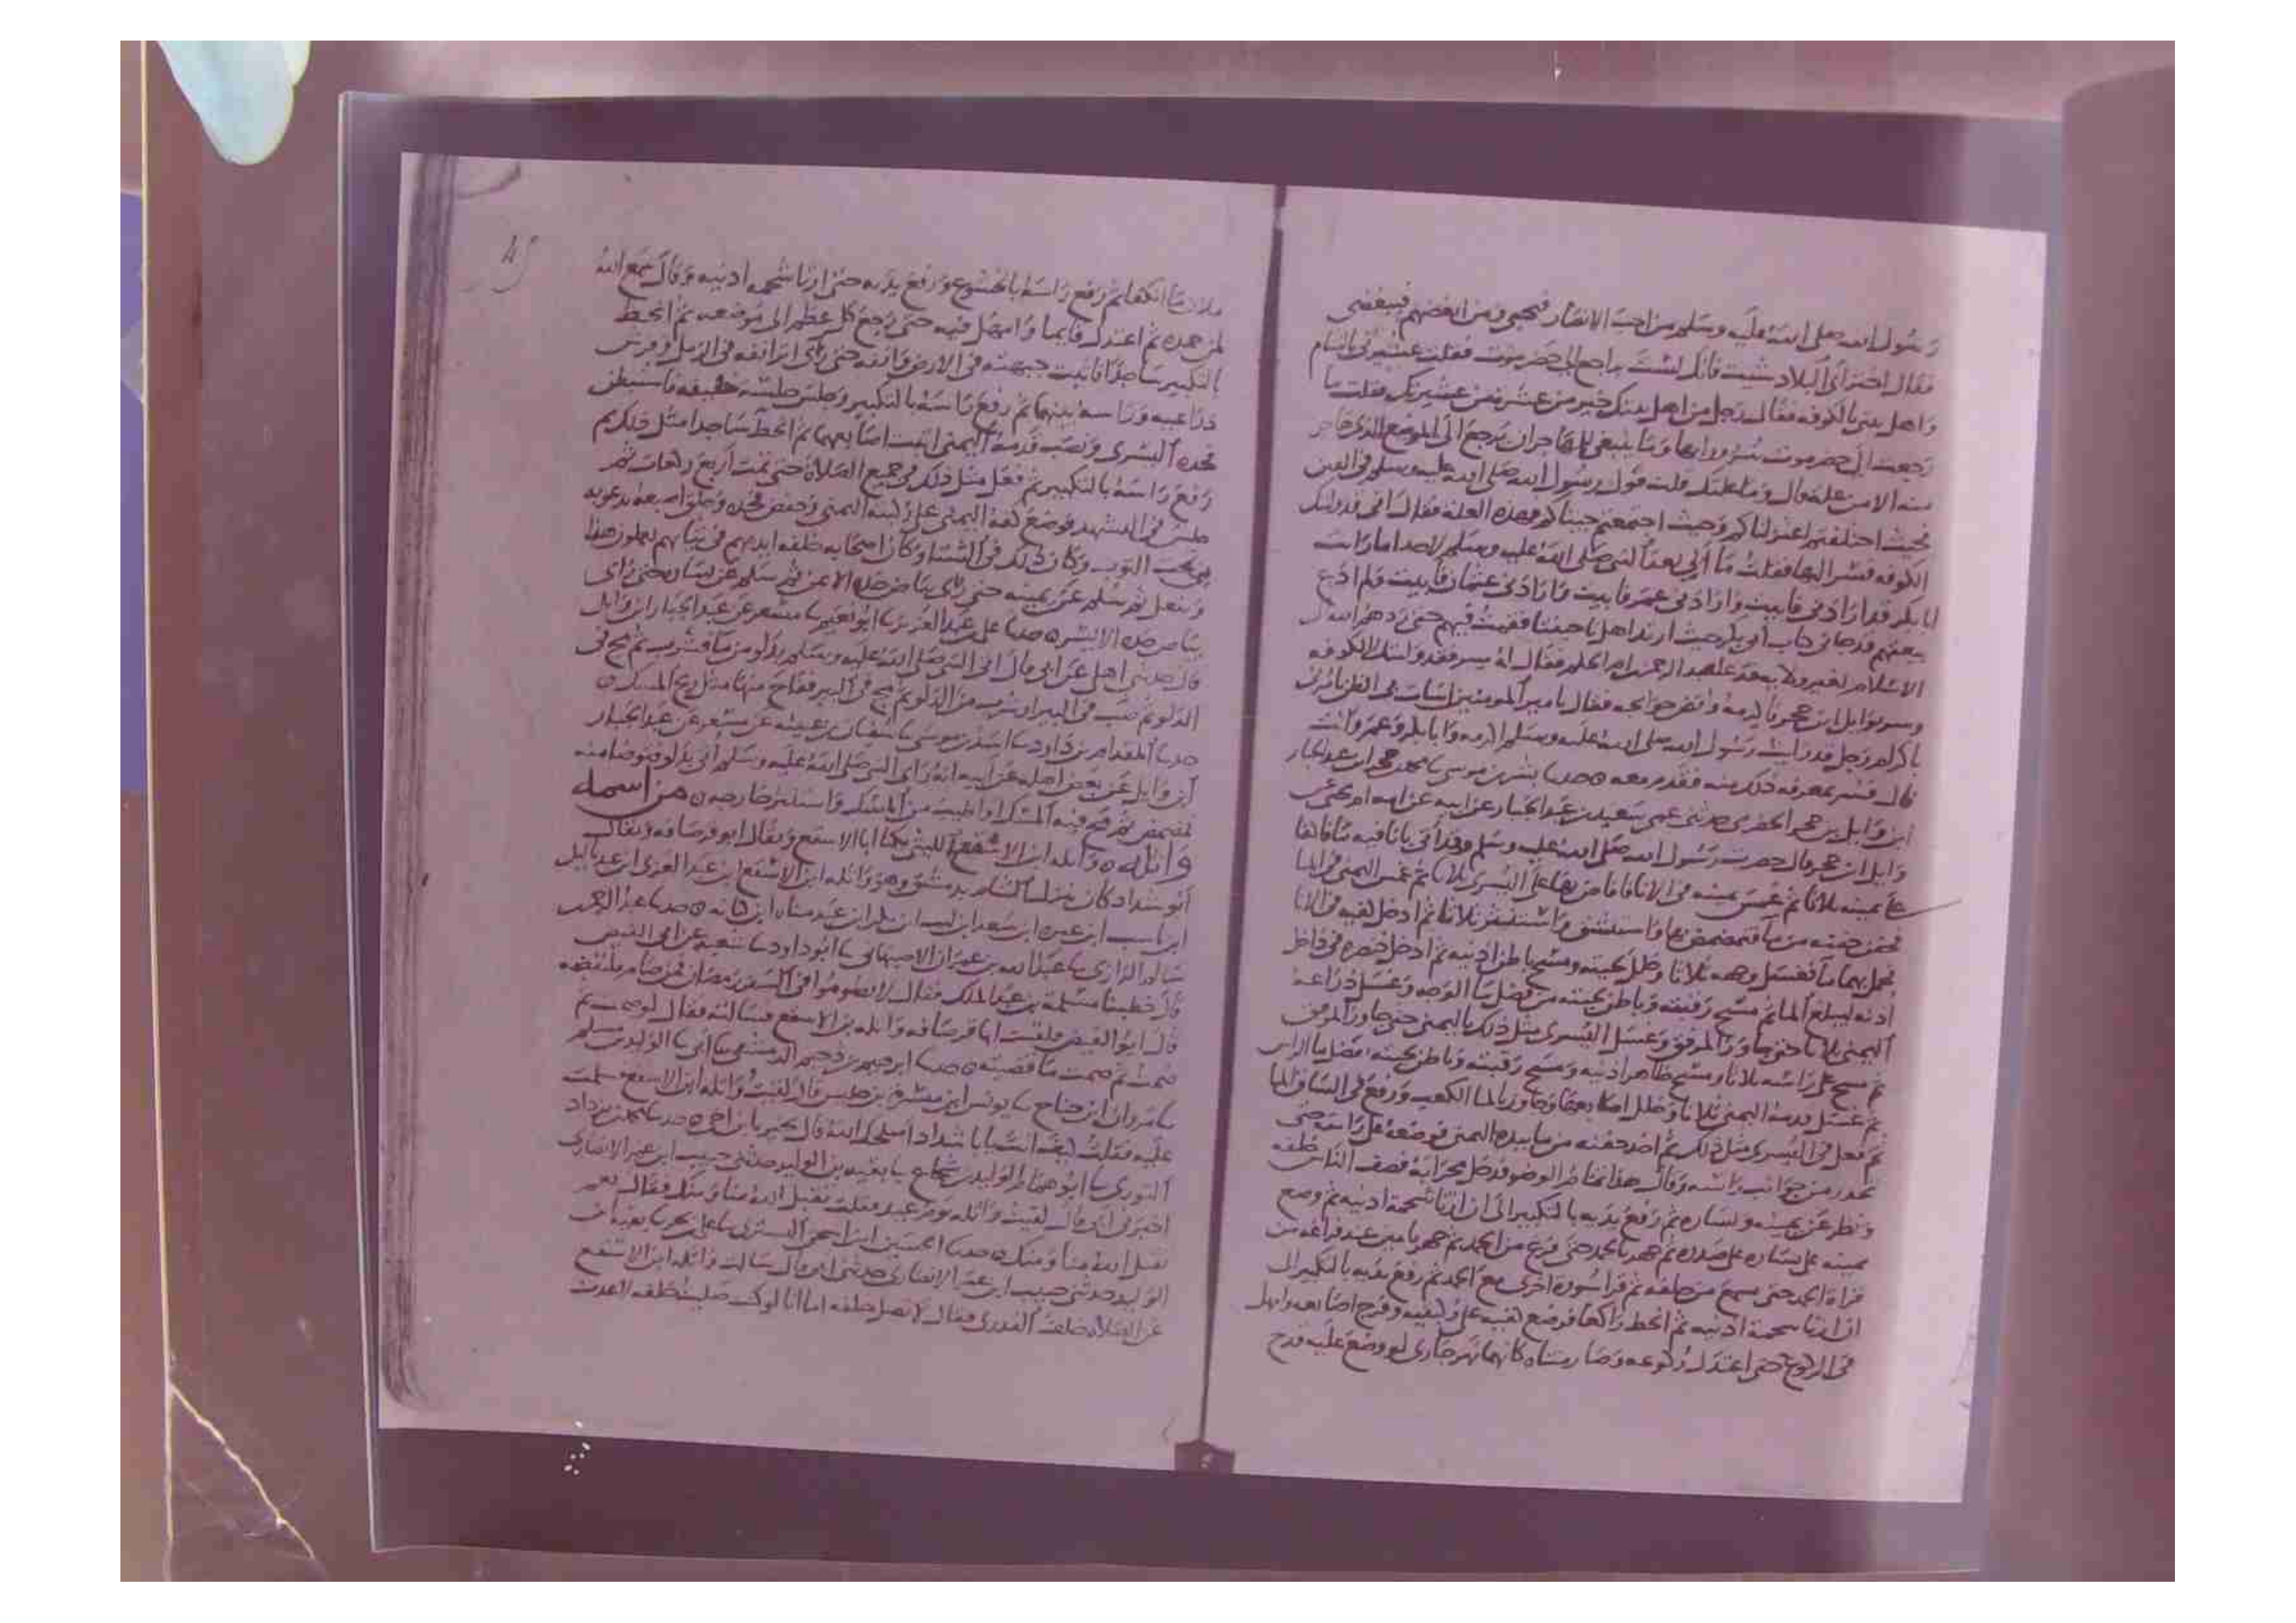 رسول الله صلى الله عليه وسلم من احب الانصار فبحبي ومن ابغضهم فببغضي
فقال اختر اي البلاد شيت فانك لست براجع الى حضرموت فقلت عشيرتي بالشام
واهل بيتي بالكوفه فقال رجل من اهل بيتك خير من عشره من عشيرتك فقلت ما
رجعت الى حضرموت سرورا بها وما ينبغي للمهاجر ان يرجع الى الموضع الذي هاجر
منه الا من عله قال وما علتك قلت قول رسول الله صلى الله عليه وسلم في الفتن
فحيث اختلفتم اعتزلناكم وحيث اجتمعتم جيناكم فهذه العله فقال اني قد وليتك
الكوفه فسر اليها فقلت ما الي بعد النبي صلى الله عليه وسلم لاحد اما رايت
ابا بكر قد ارادني فابيت وارادني عمر فابيت وارادني عثمان فابيت ولم ادع
بيعتهم قد جاني كتاب ابي بكر حيث ارتد اهل ناحيتنا فقمت فيهم حتى ردهم الله الى
الاسلام بغير ولايه فدعا عبد الرحمن ابن ام الحكم فقال له سر فقد وليتك الكوفه
وسر بوايل ابن حجر فاكرمه واقض حوايجه فقال يا امير المومنين اسات بي الظن تامرني
باكرام رجل قد رايت رسول الله صلى الله عليه وسلم اكرمه وابا بكر وعمر وانت
قال فسر معويه بذلك منه فقدم معه حدثنا بشر بن موسى نا محمد بن حجر ابن عبد الجبار
ابن وايل بن حجر الحضرمي حدثني عمي سعيد بن عبد الجبار عن ابيه عن امه ام يحيى عن
وايل ابن حجر قال حضرت رسول الله صلى الله عليه وسلم وقد اتي باناء فيه ماء فاكفا
على يمينه ثلاثا ثم غمس يمينه في الانا فافاض بها على اليسرى ثلاثا ثم غمس اليمنى في الما
فحفن حفنه من ما فتمضمض بها واستنشق واستنثر ثلاثا ثم ادخل كفيه في الانا
فحمل بهما ما فغسل وجهه ثلاثا وخلل لحيته ومسح باطن اذنيه ثم ادخل خنصره في داخل
اذنه ليبلغ الما ثم مسح رقبته وباطن لحيته من فضل ما الوجه وغسل ذراعه
اليمنى ثلاثا حتى جاوز المرفق وغسل اليسرى مثل ذلك باليمنى حتى جاوز المرفق
ثم مسح على راسه ثلاثا ومسح ظاهر اذنيه ومسح رقبته وباطن لحيته بفضل ما الراس
ثم غسل قدمه اليمنى ثلاثا وخلل اصابعها وجاوز بالما الكعب ورفع في الساق الما
ثم فعل في اليسرى مثل ذلك ثم اخذ حفنه من ما بيده اليمنى فوضعه على راسه حتى
تحدر من جوانب راسه وقال هذا تمام الوضو فدخل محرابه فصف الناس خلفه
ونظر عن يمينه ويساره ثم رفع يديه بالتكبير الى ان ازيا شحمة اذنيه ثم وضع
يمينه على يساره على صدره ثم جهر بالحمد حتى فرغ من الحمد ثم جهر بامين عند فراغه من
قراة الحمد حتى سمع من خلفه ثم قرا سورة اخرى مع الحمد ثم رفع يديه بالتكبير الى
ان ازيا شحمة اذنيه ثم انحط راكعا فوضع كفيه على ركبتيه وفرج اصابعه وامهل
في الركوع حتى اعتدل ركوعه وصار متناه كانهما نهر جاري لو وضع عليه قدح
ملان ما انكفا ثم رفع راسه بالخشوع ورفع يديه حتى ازيا شحمه اذنيه وقال سمع الله
لمن حمده ثم اعتدل قايما وامهل فيه حتى رجع كل عظم الى موضعه ثم انحط
بالتكبير ساجدا فاثبت جبهته في الارض وانفه حتى راى اثر انفه في الرمل وفرش
ذراعيه وراسه بينهما ثم رفع راسه بالتكبير وجلس جلسته خفيفه فاستبطن
فخذه اليسرى ونصب قدمه اليمنى اثبت اصابعها ثم انحط ساجدا مثل ذلك ثم
رفع راسه بالتكبير ثم فعل مثل ذلك في جميع الصلاة حتى تمت اربع ركعات ثم
جلس في التشهد فوضع كفه اليمنى على ركبته اليمنى وخفض فخذه وحلق اصبعه يدعو به
من تحت الثوب وكان ذلك في الشتا وكان اصحابه خلفه ايديهم في ثيابهم يعملون هذا
وتنفل ثم سلم عن يمينه حتى راى بياض خده الايمن ثم سلم عن يساره حتى راى
بياض خده الايسر حدثنا علي بن عبد العزيز نا ابو نعيم نا مسعر عن عبد الجبار ابن وايل
قال حدثني اهلي عن ابي قال اتي النبي صلى الله عليه وسلم بدلو من ما فشرب ثم مج في
الدلو ثم صب في البير او شرب من الدلو ثم مج في البير ففاح منها مثل ريح المسك
حدثنا المقدام بن داود نا اسد بن موسى نا سفيان بن عيينه عن مسعر عن عبد الجبار
ابن وايل عن بعض اهله عن ابيه انه راى النبي صلى الله عليه وسلم اتي بدلو فتوضا منه
فمضمض ثم مج فيه المسك او اطيب من المسك واستنثر خارجه من اسمه
واثله واثله ابن الاسقع الليثي يكنا ابا الاسقع ويقال ابو قرصافه ويقال
ابو شداد كان ينزل الشام بدمشق وهو واثله ابن الاسقع ابن عبد العزى ابن عبد ياليل
ابن ناشب ابن غيره ابن سعد ابن ليث ابن بكر ابن عبد مناه ابن كنانه حدثنا عبد الرحمن
بن سلم الرازي نا عبد الله بن عمران الاصبهاني نا ابو داود نا شعبه عن ابي الفيض
قال خطبنا مسلمة بن عبد الملك فقال لا تصوموا في السفر رمضان فمن صام فليقضه
قال ابو الفيض فلقيت ابا قرصافه واثله بن الاسقع فسالته فقال لو صمت ثم
صمت ثم صمت ما قضيته حدثنا ابرهيم بن دحيم الدمشقي نا ابي نا الوليد بن مسلم
نا مروان ابن جناح نا يونس ابن ميسره بن حلبس قال لقيت واثله ابن الاسقع فسلمت
عليه فقلت كيف انت يا ابا شداد اصلحك الله قال بخير يا ابن اخي حدثنا محمد بن يزداد
التوزي نا ابو همام الوليد بن شجاع نا بقيه بن الوليد حدثني حبيب ابن عمر الانصاري
اخبرني ابي قال لقيت واثله يوم عيد فقلت تقبل الله منا ومنك فقال نعم
تقبل الله منا ومنك حدثنا الحسين ابن اسحق التستري نا علي بن بحر نا بقيه ابن
الوليد حدثني حبيب ابن عمر الانصاري حدثني ابي قال سالت واثله ابن الاسقع
عن الصلاه خلف القدري فقال لا تصل خلفه اما انا لو كنت صليت خلفه لاعدت